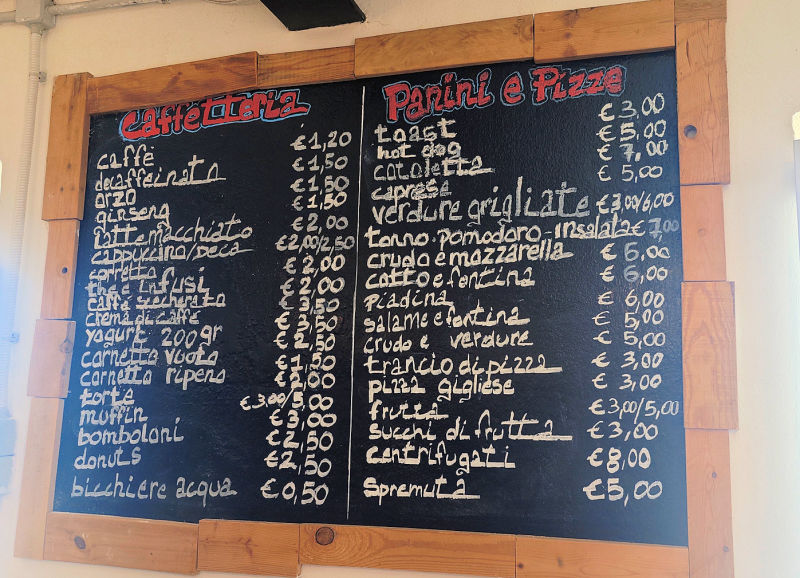 Caffetteria
caffè € 1,20
decaffeinato € 1,50
orzo € 1,50
ginseng € 1,50
latte macchiato € 2,00
cappuccino/deca € 2,00/2,50
corretto € 2,00
the e infusi € 2,00
caffè shecherato € 3,50
crema di caffè € 3,50
yogurt 200 gr € 2,50
cornetto vuoto € 1,50
cornetto ripieno € 2,00
torte € 3,00/5,00
muffin € 3,00
bomboloni € 2,50
donuts € 2,50
bicchiere acqua € 0,50
Panini e Pizze
toast € 3,00
hot dog € 5,00
cotoletta € 7,00
caprese € 5,00
verdure grigliate € 3,00/6,00
tonno-pomodoro-insalata € 7,00
crudo e mozzarella € 6,00
cotto e fontina € 6,00
piadina € 6,00
salame e fontina € 5,00
crudo e verdure € 5,00
trancio di pizza € 3,00
pizza gigliese € 3,00
frutta € 3,00/5,00
succhi di frutta € 3,00
centrifugati € 8,00
spremuta € 5,00